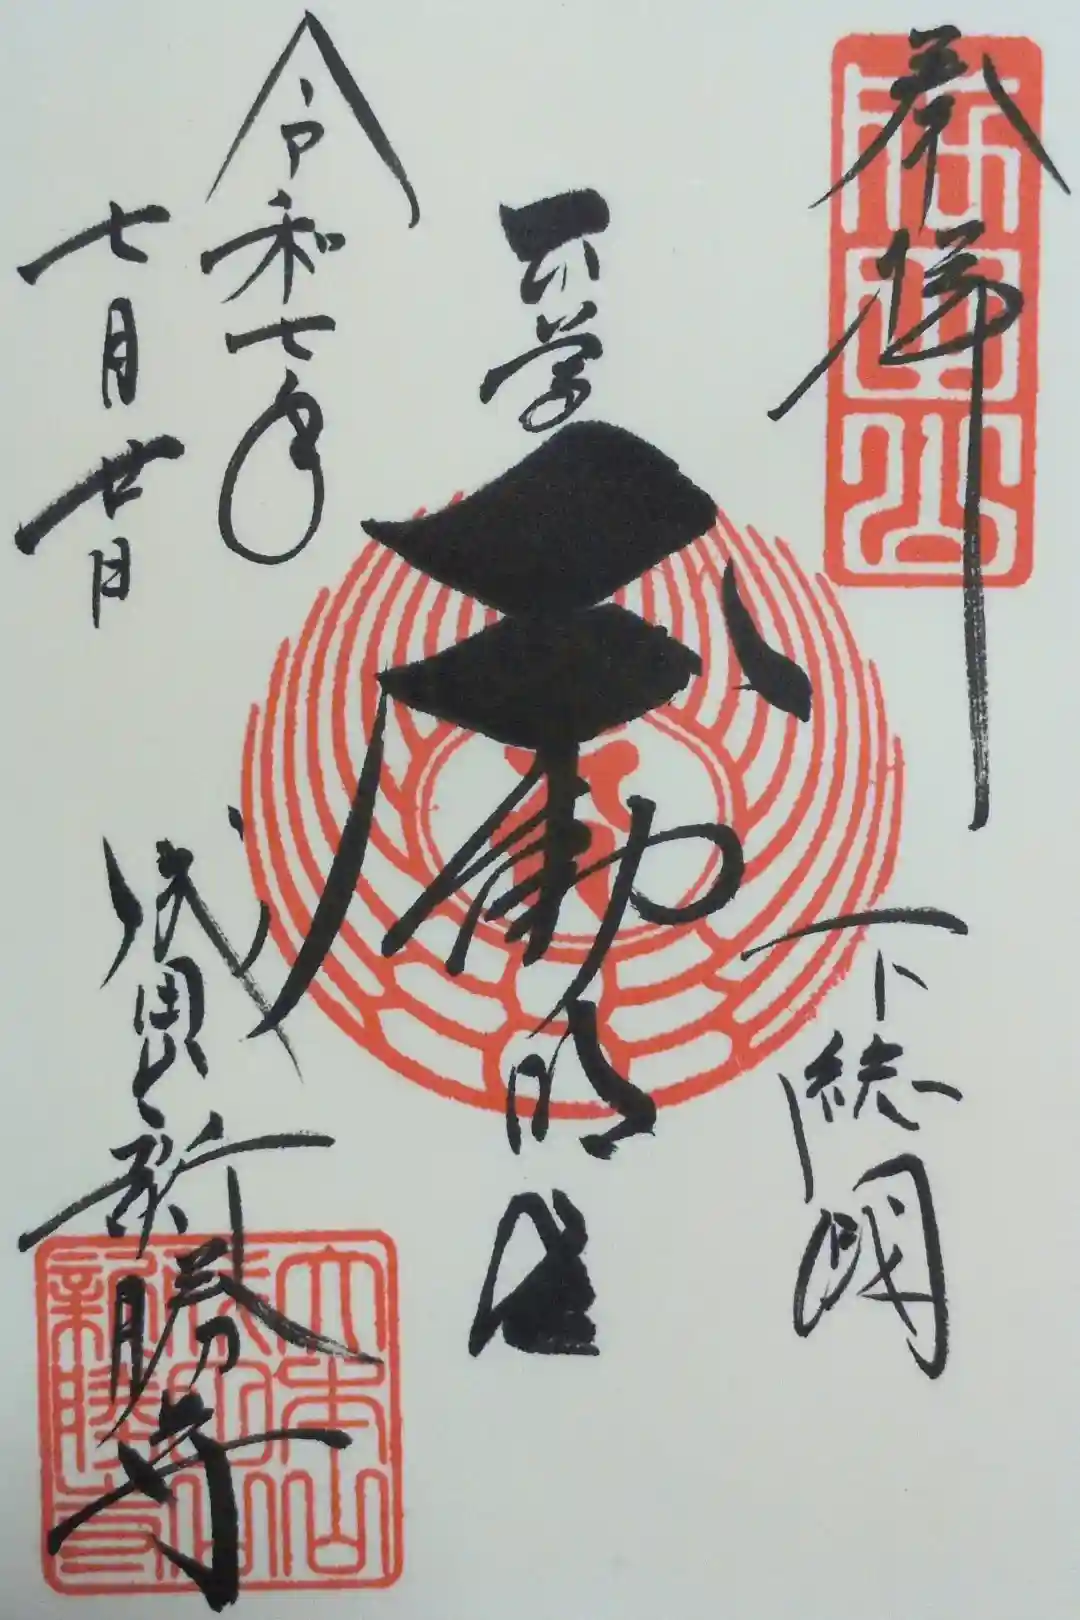 奉拝
成田山
下総國
不動明王
令和七年
七月廿日
成田山新勝寺
大本山
成田山
新勝寺